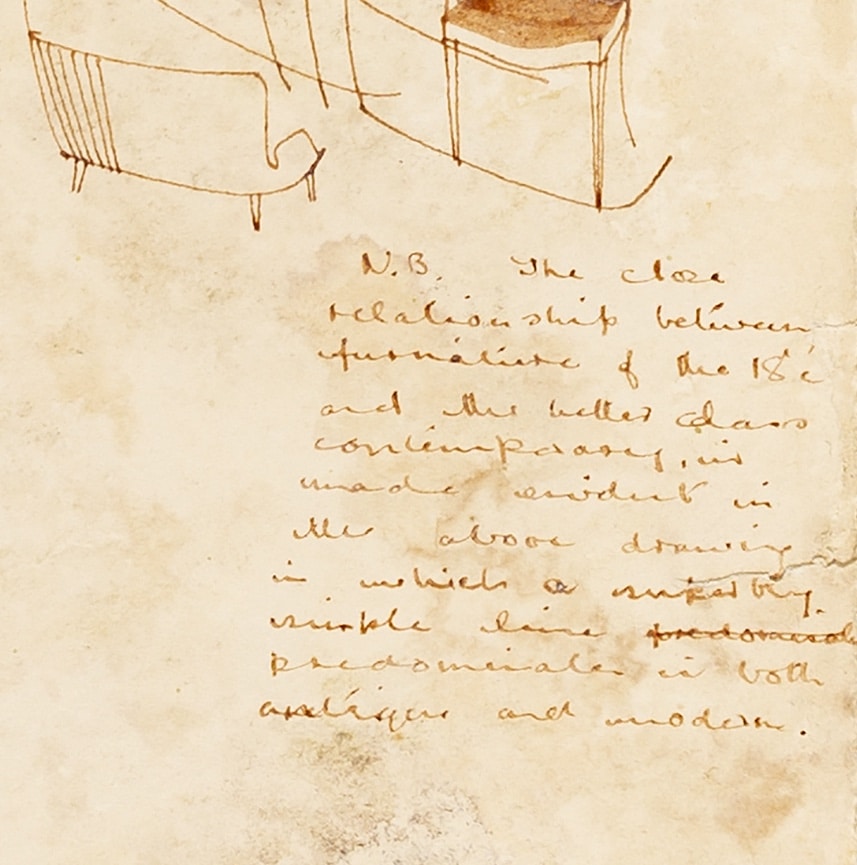 N.B. The close
relationship between
furniture of the 18' c
and the better class
contemporary, is
made evident in
the above drawing
in which a superbly
simple line predominat
predominates in both
antique and modern.